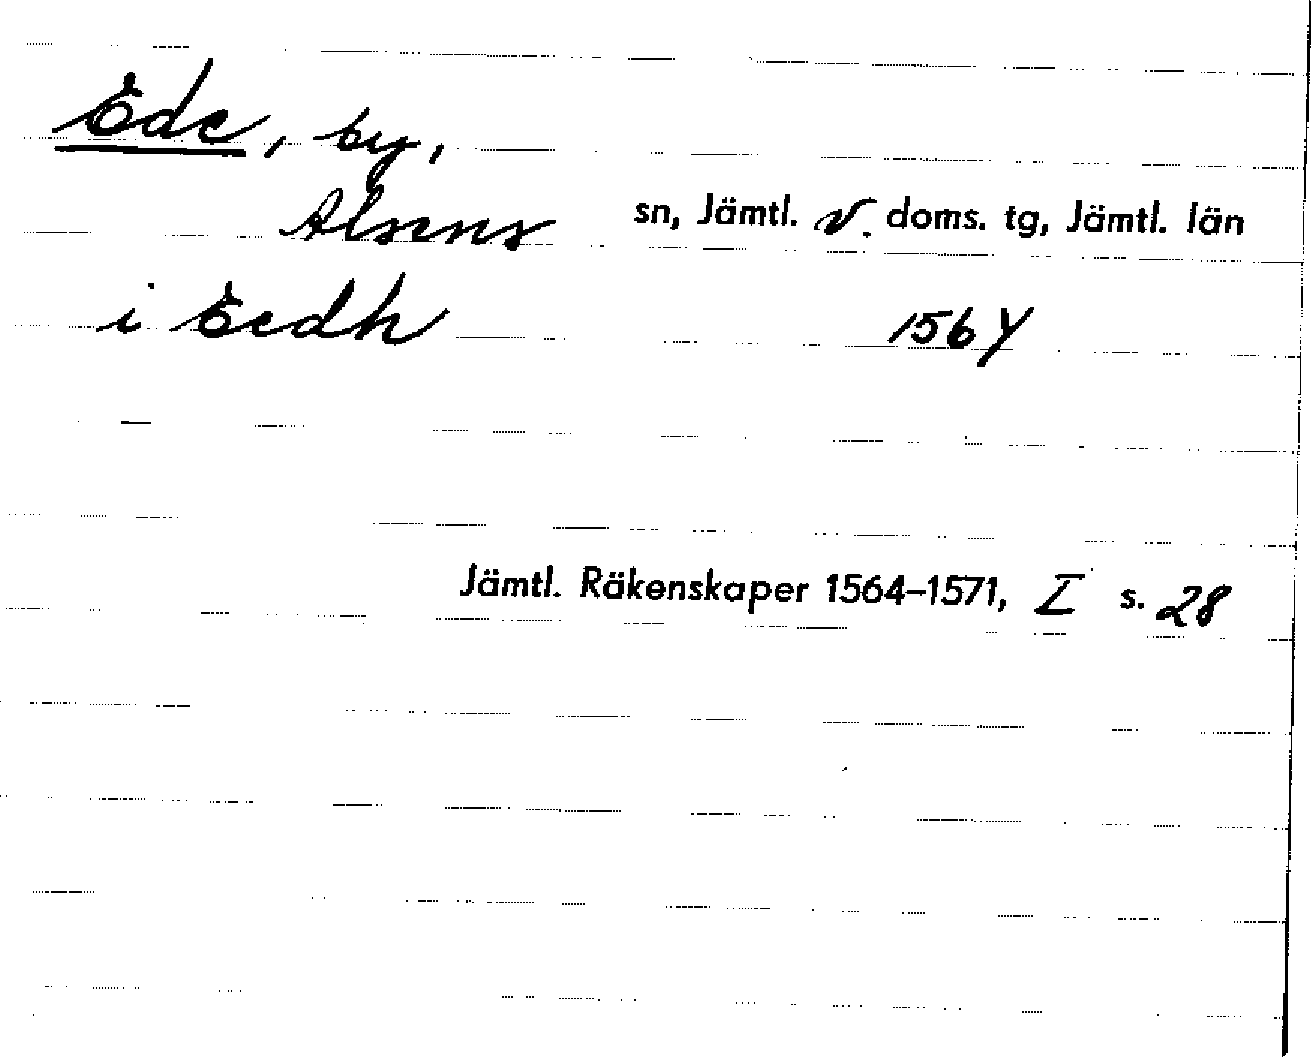 Ede, by,
Alsens sn, Jämtl. v. doms. tg, Jämtl. län
i Eedh 1564
Jämtl. Räkenskaper 1564–1571, I s. 28